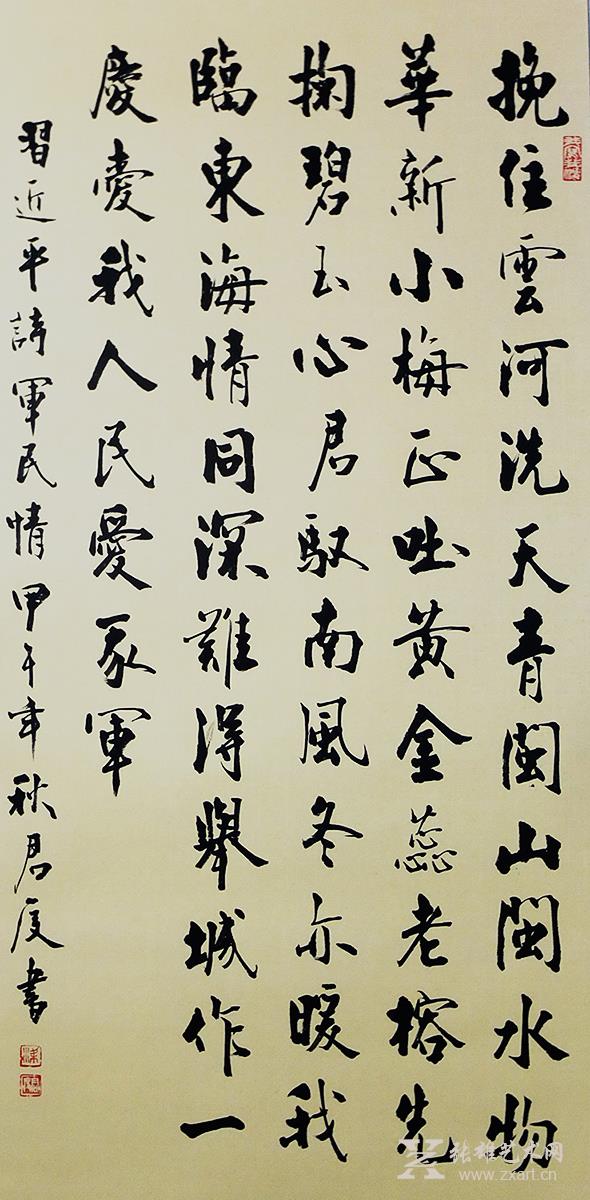 挽住雲河洗天青閩山閩水物
華新小梅正吐黄金蕊老榕先
掬碧玉心君馭南風冬亦暖我
臨東海情同深難得舉城作一
慶愛我人民愛我軍
習近平詩軍民情甲午年秋君度書
张雄艺术网
www.zxart.cn